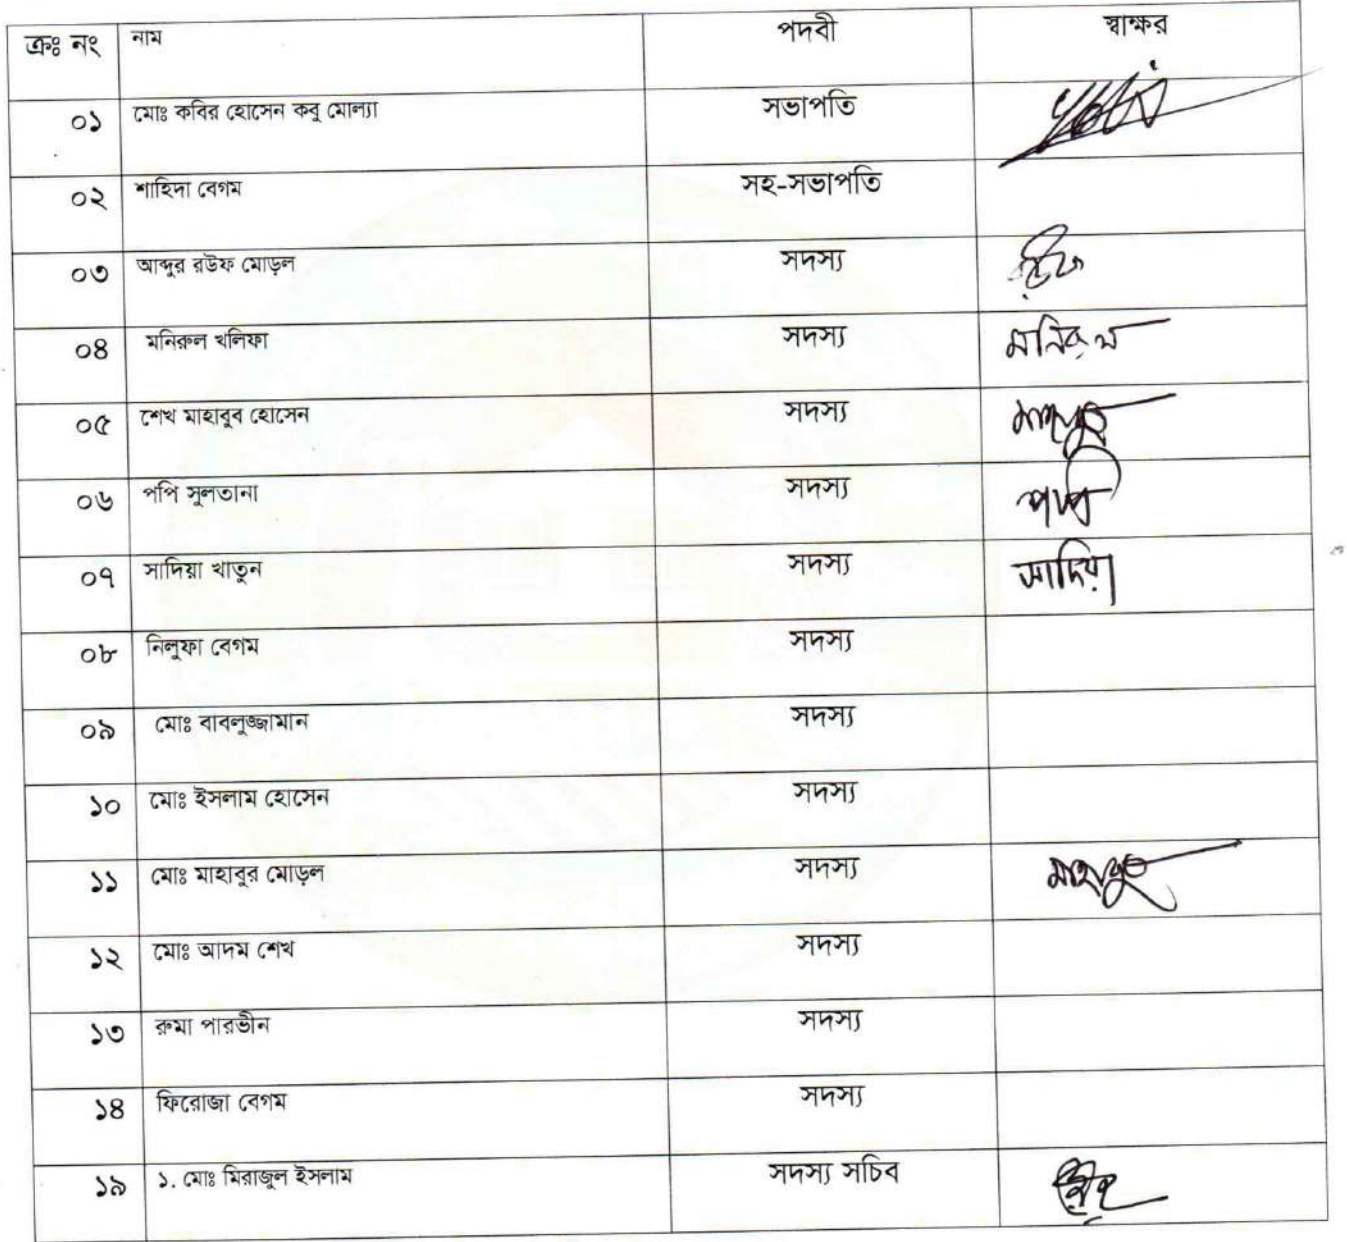 ক্রঃ নং নাম পদবী স্বাক্ষর
০১ মোঃ কবির হোসেন কবু মোল্যা সভাপতি
০২ শাহিদা বেগম সহ-সভাপতি
০৩ আব্দুর রউফ মোড়ল সদস্য
০৪ মনিরুল খলিফা সদস্য মনিরুল
০৫ শেখ মাহাবুব হোসেন সদস্য
০৬ পপি সুলতানা সদস্য পপি
০৭ সাদিয়া খাতুন সদস্য সাদিয়া
০৮ নিলুফা বেগম সদস্য
০৯ মোঃ বাবলুজ্জামান সদস্য
১০ মোঃ ইসলাম হোসেন সদস্য
১১ মোঃ মাহাবুর মোড়ল সদস্য
১২ মোঃ আদম শেখ সদস্য
১৩ রুমা পারভীন সদস্য
১৪ ফিরোজা বেগম সদস্য
১৯ ১. মোঃ মিরাজুল ইসলাম সদস্য সচিব